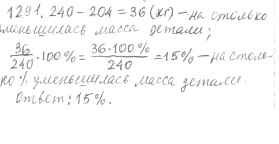 1291. 240 - 204 = 36 (кг) - на столько
уменьшилась масса детали;
36/240 · 100% = 36·100%/240 = 15% - на столь-
ко % уменьшилась масса детали.
Ответ: 15%.